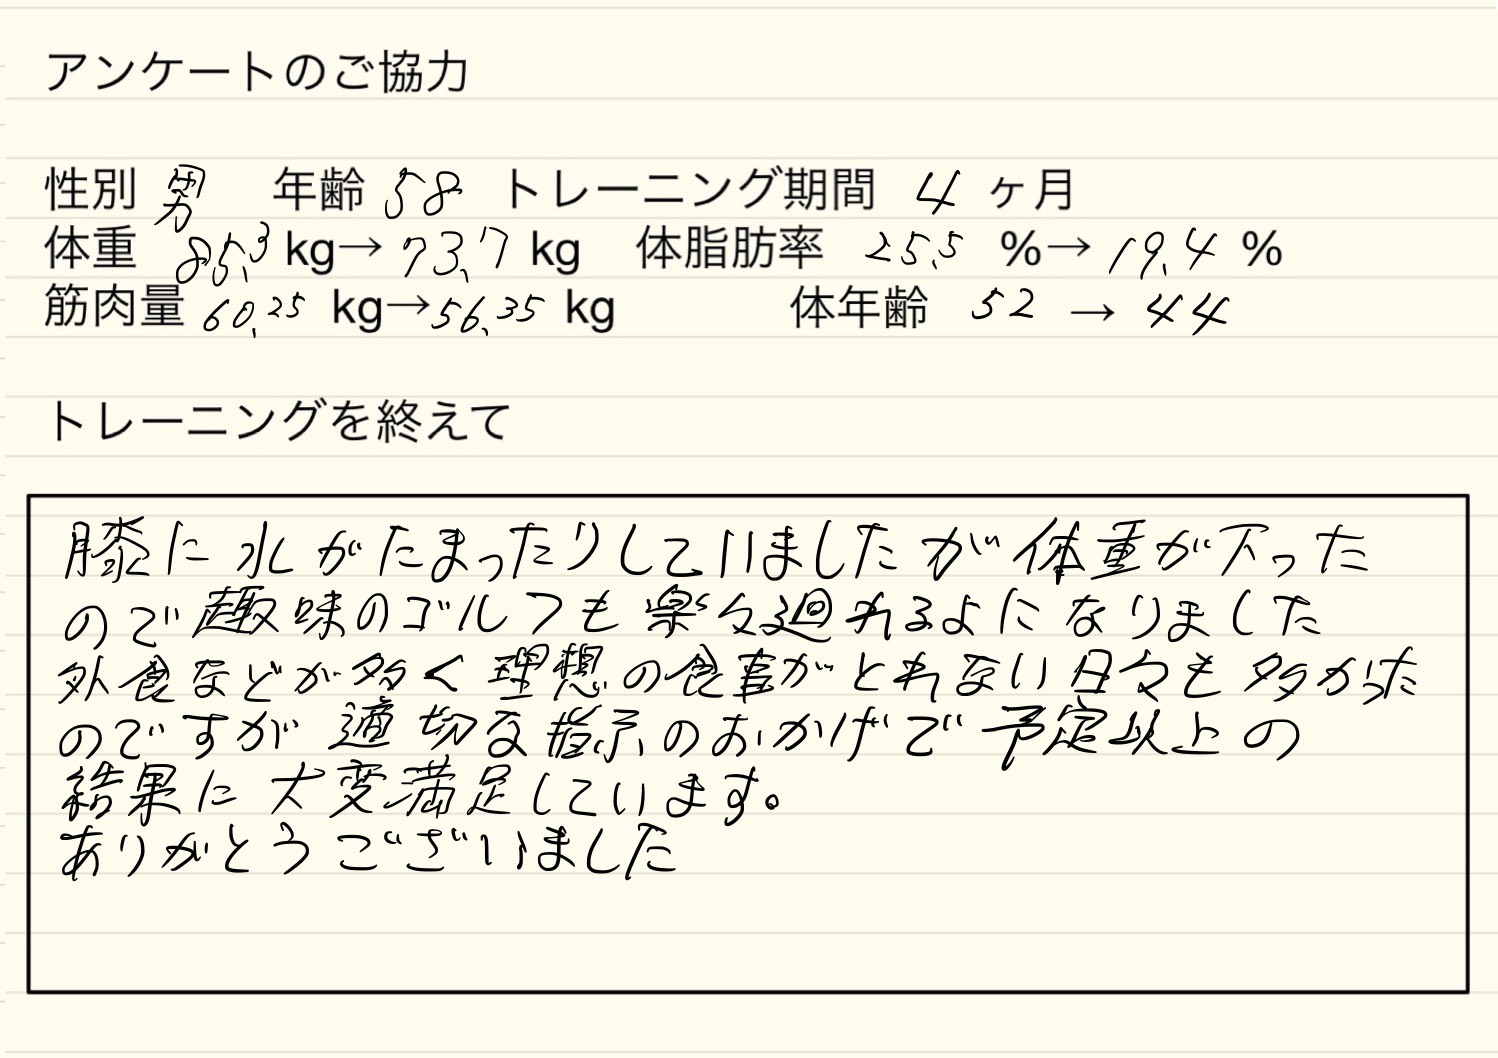 アンケートのご協力
性別 男 年齢 58 トレーニング期間 4 ヶ月
体重 85.3 kg→ 73.7 kg 体脂肪率 25.5 %→ 19.4 %
筋肉量 60.25 kg→56.35 kg 体年齢 52 → 44
トレーニングを終えて
膝に水がたまったりしていましたが体重が下った
ので趣味のゴルフも楽々廻れるよになりました
外食などが多く理想の食事がとれない日々も多かった
のですが適切な指示のおかげで予定以上の
結果に大変満足しています。
ありがとうございました